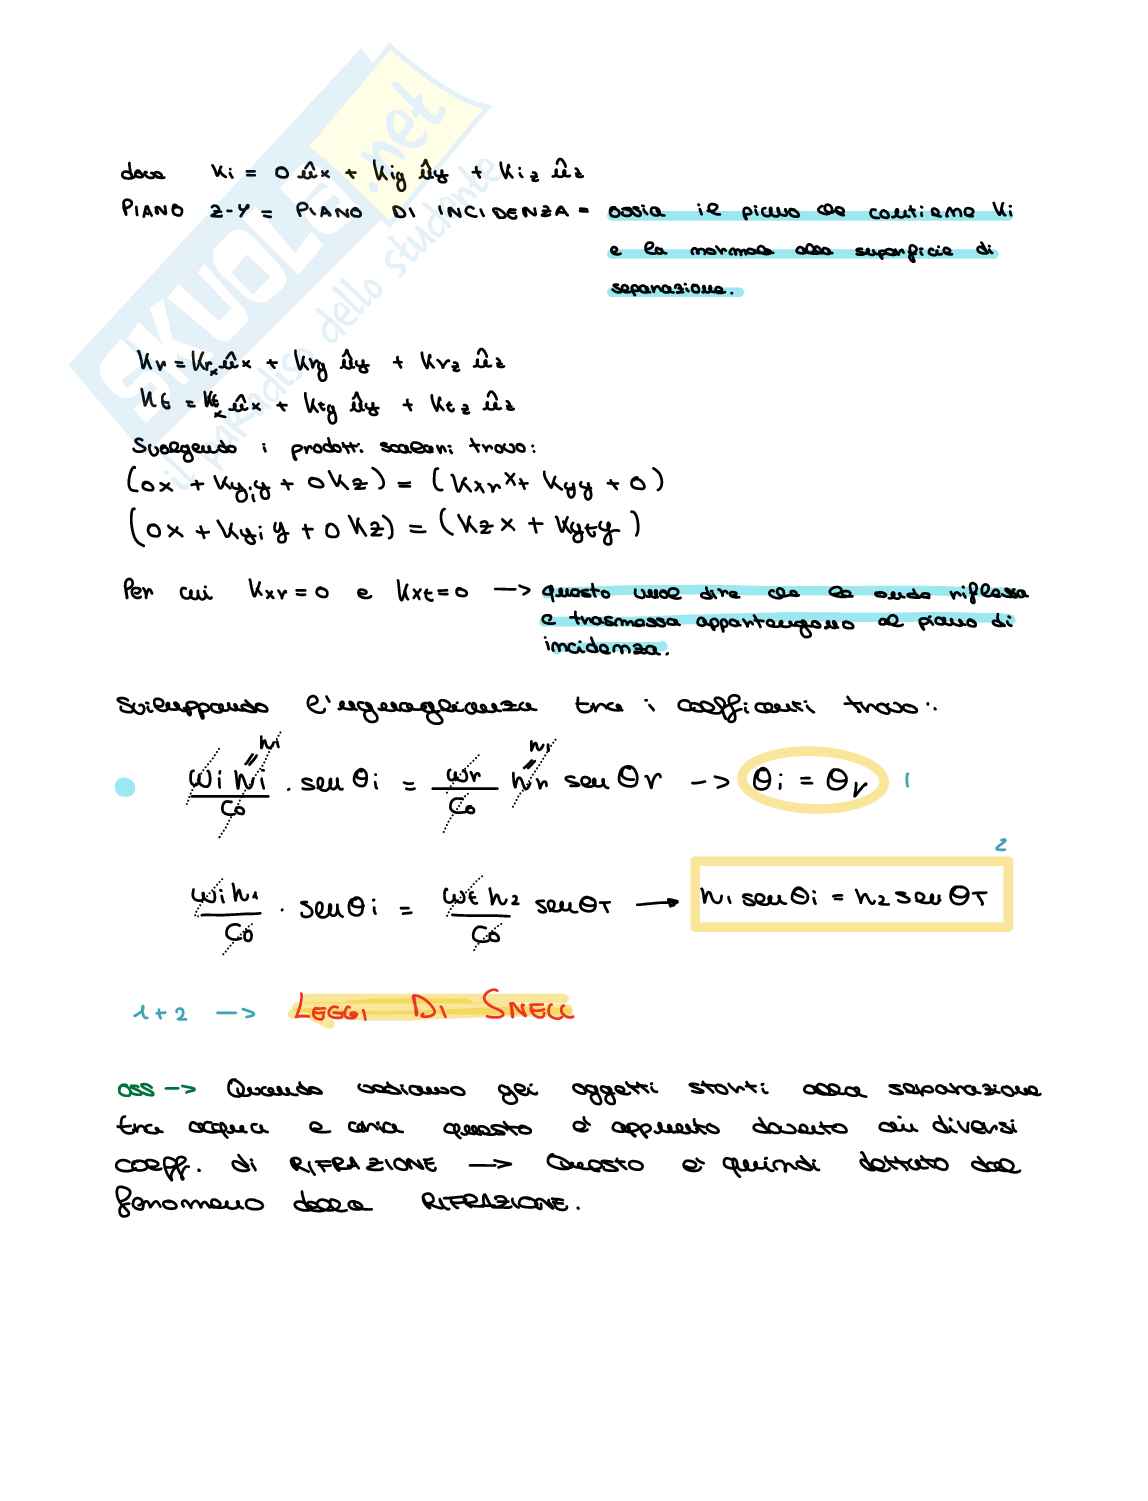 SKUOLA.net
il paradiso dello studente
dove Ki = 0 ûx + Kiy ûy + Kiz ûz
PIANO Z-Y = PIANO DI INCIDENZA = ossia il piano che contiene Ki
e la normale alla superficie di
separazione.
Kr = Krx ûx + Kry ûy + Krz ûz
Kt = Ktx ûx + Kty ûy + Ktz ûz
Svolgendo i prodotti scalari trovo:
(0x + Kyi y + 0Kz) = (Kxr x + Kyy + 0)
(0x + Kyi y + 0Kz) = (Kzx + Kyty)
Per cui Kxr = 0 e Kxt = 0 —> questo vuol dire che la onda riflessa
e trasmessa appartengono al piano di
incidenza.
Sviluppando l'uguaglianza tra i coefficienti trovo:
n1 n1
ωi ni / C0 · sen θi = ωr / C0 nr sen θr —> θi = θr 1
2
ωi n1 / C0 · sen θi = ωt n2 / C0 sen θT —> n1 sen θi = n2 sen θT
1+2 —> LEGGI DI SNELL
OSS —> Quando vediamo gli oggetti storti alla separazione
tra acqua e aria questo è appunto dovuto ai diversi
coeff. di RIFRAZIONE —> Questo è quindi dettato dal
fenomeno della RIFRAZIONE.